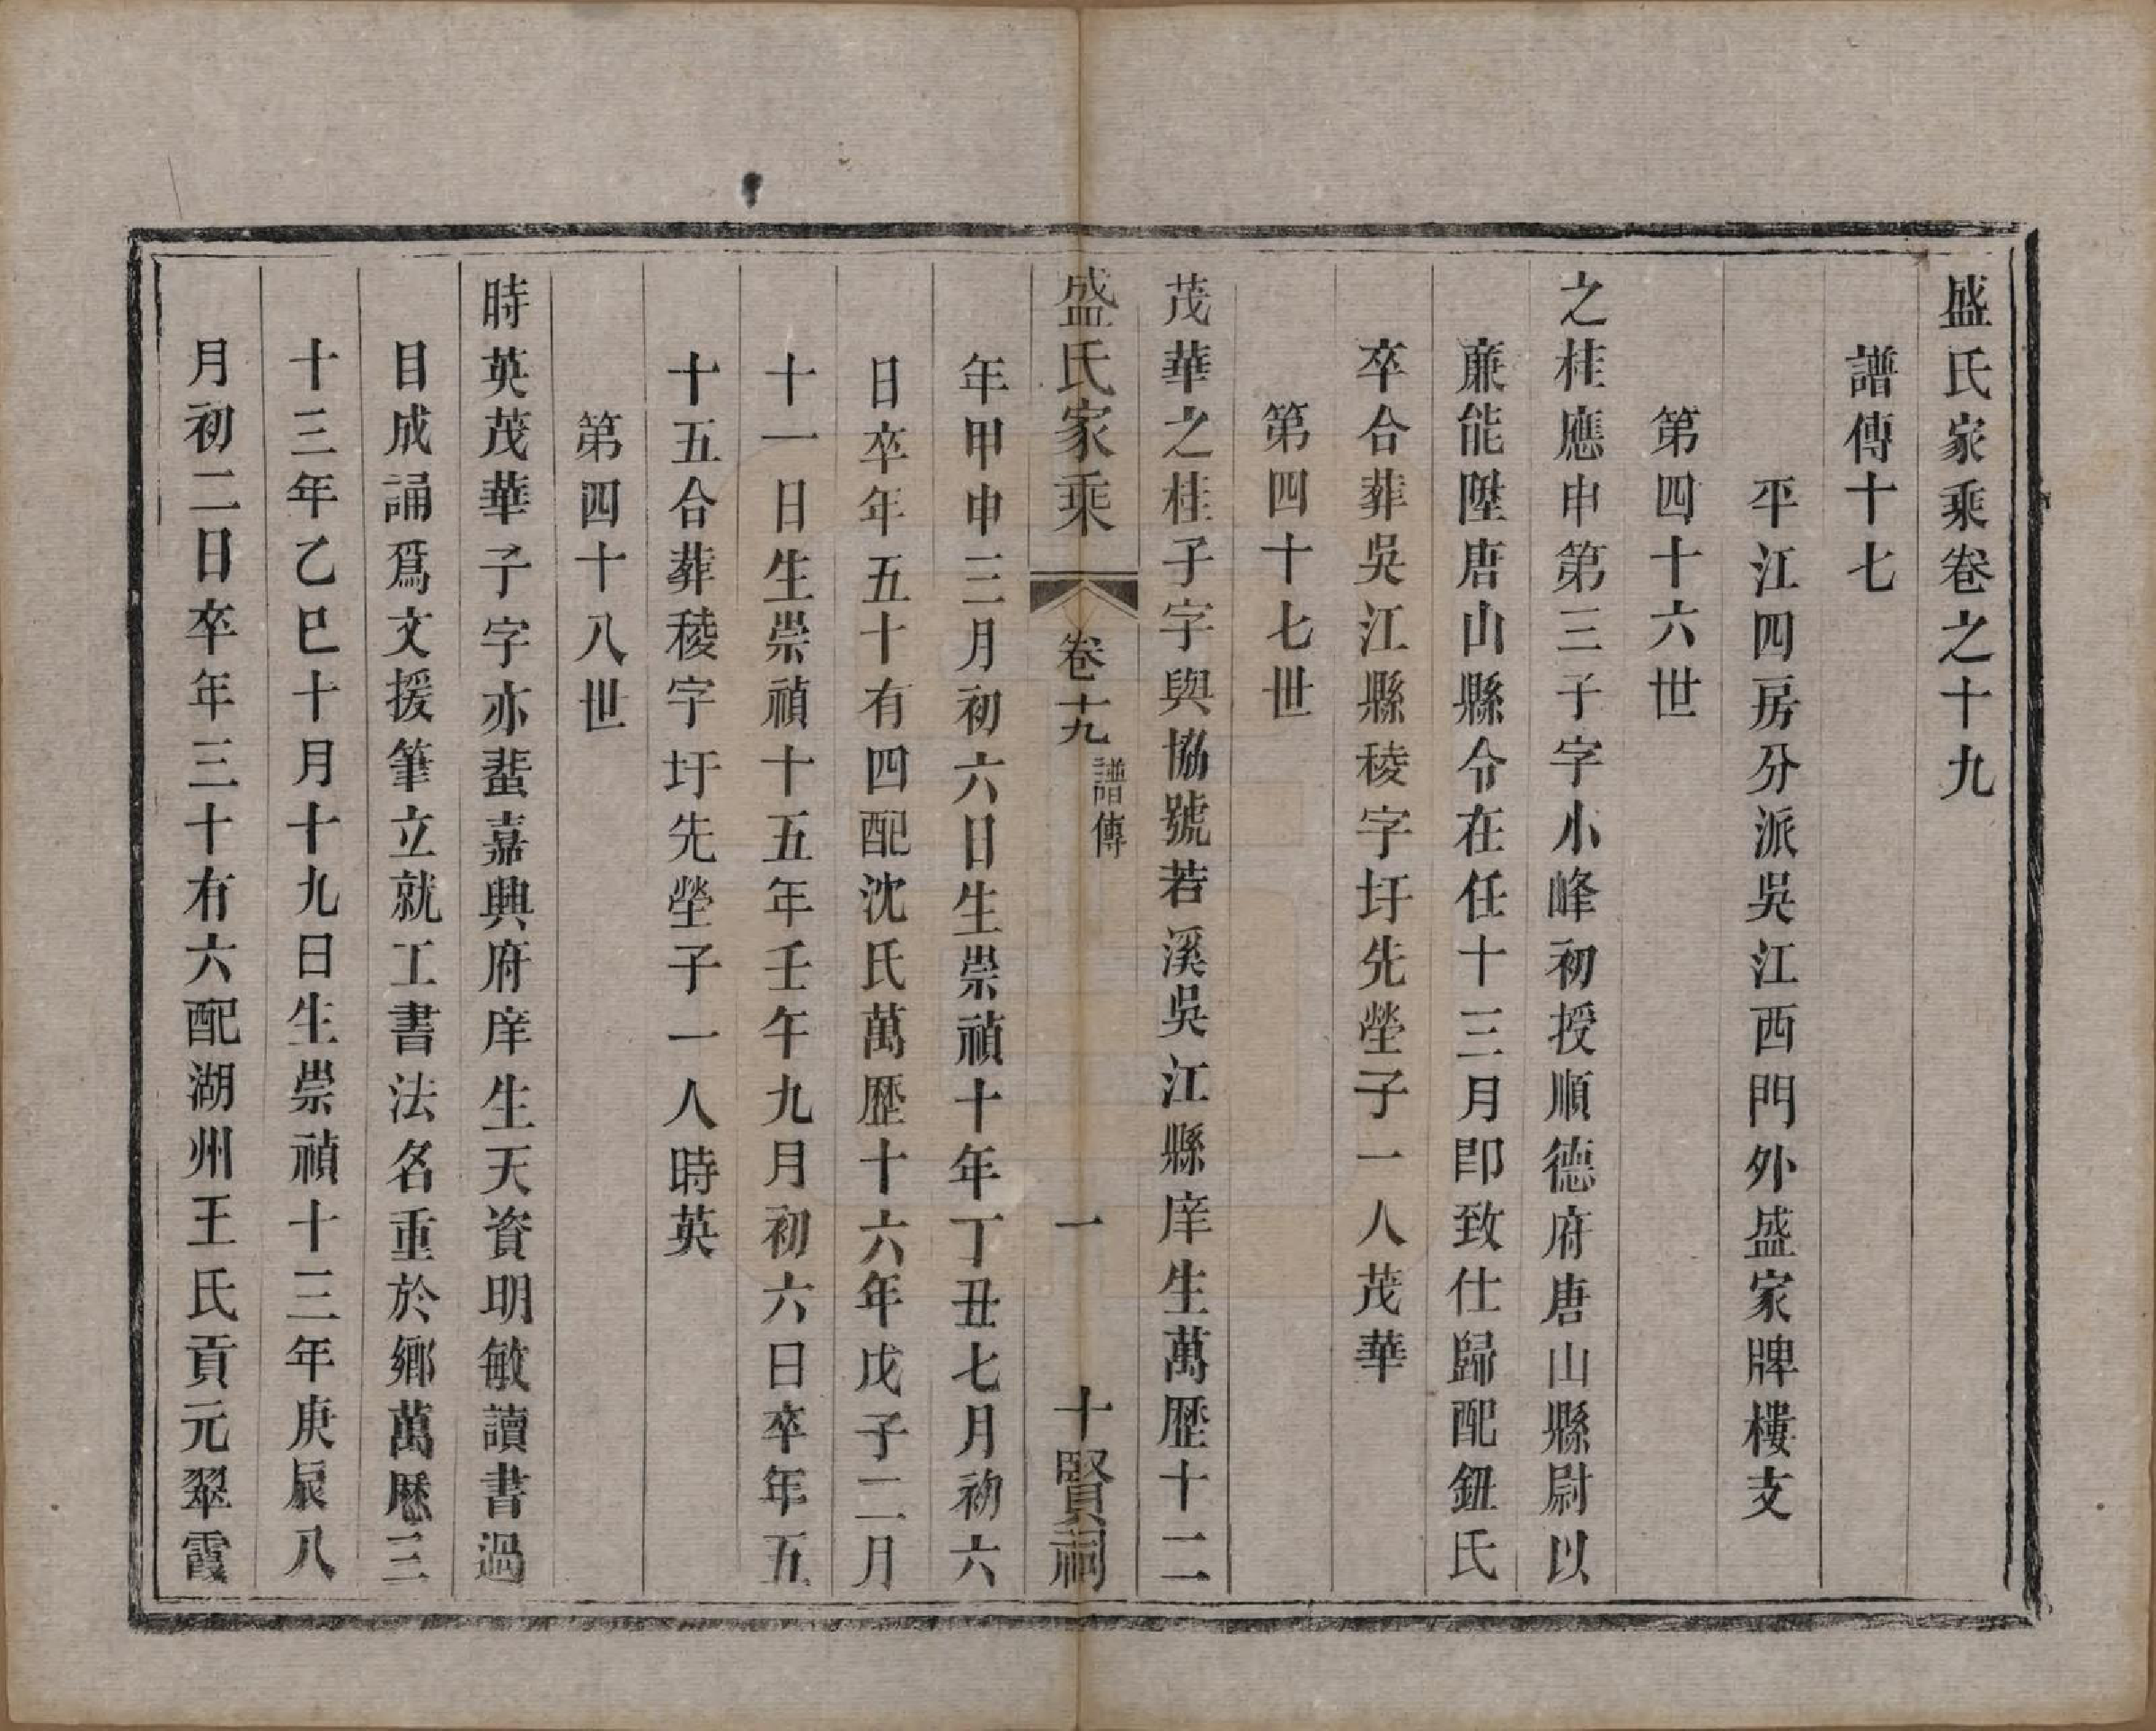 盛氏家乘卷之十九
譜傳十七
平江四房分派吳江西門外盛家牌樓支
第四十六世
之桂應申第三子字小峰初授順德府唐山縣尉以
亷能陞唐山縣令在任十三月卽致仕歸配鈕氏
卒合葬吳江縣稜字圩先塋子一人茂華
第四十七世
茂華之桂子字與協號若溪吳江縣庠生萬歷十二
盛氏家乘
卷十九
譜傳
一
十賢祠
年甲申三月初六日生崇禎十年丁丑七月初六
日卒年五十有四配沈氏萬歷十六年戊子二月
十一日生崇禎十五年壬午九月初六日卒年五
十五合葬稜字圩先塋子一人時英
第四十八世
時英茂華子字亦蜚嘉興府庠生天資明敏讀書過
目成誦爲文援筆立就工書法名重於鄉萬歷三
十三年乙巳十月十九日生崇禎十三年庚辰八
月初二日卒年三十有六配湖州王氏貢元翠霞